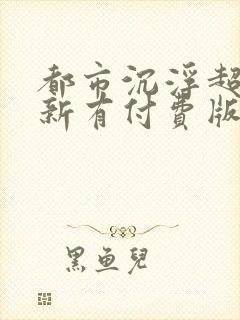 都市沉浮超
新有付費版
黑鱼兒